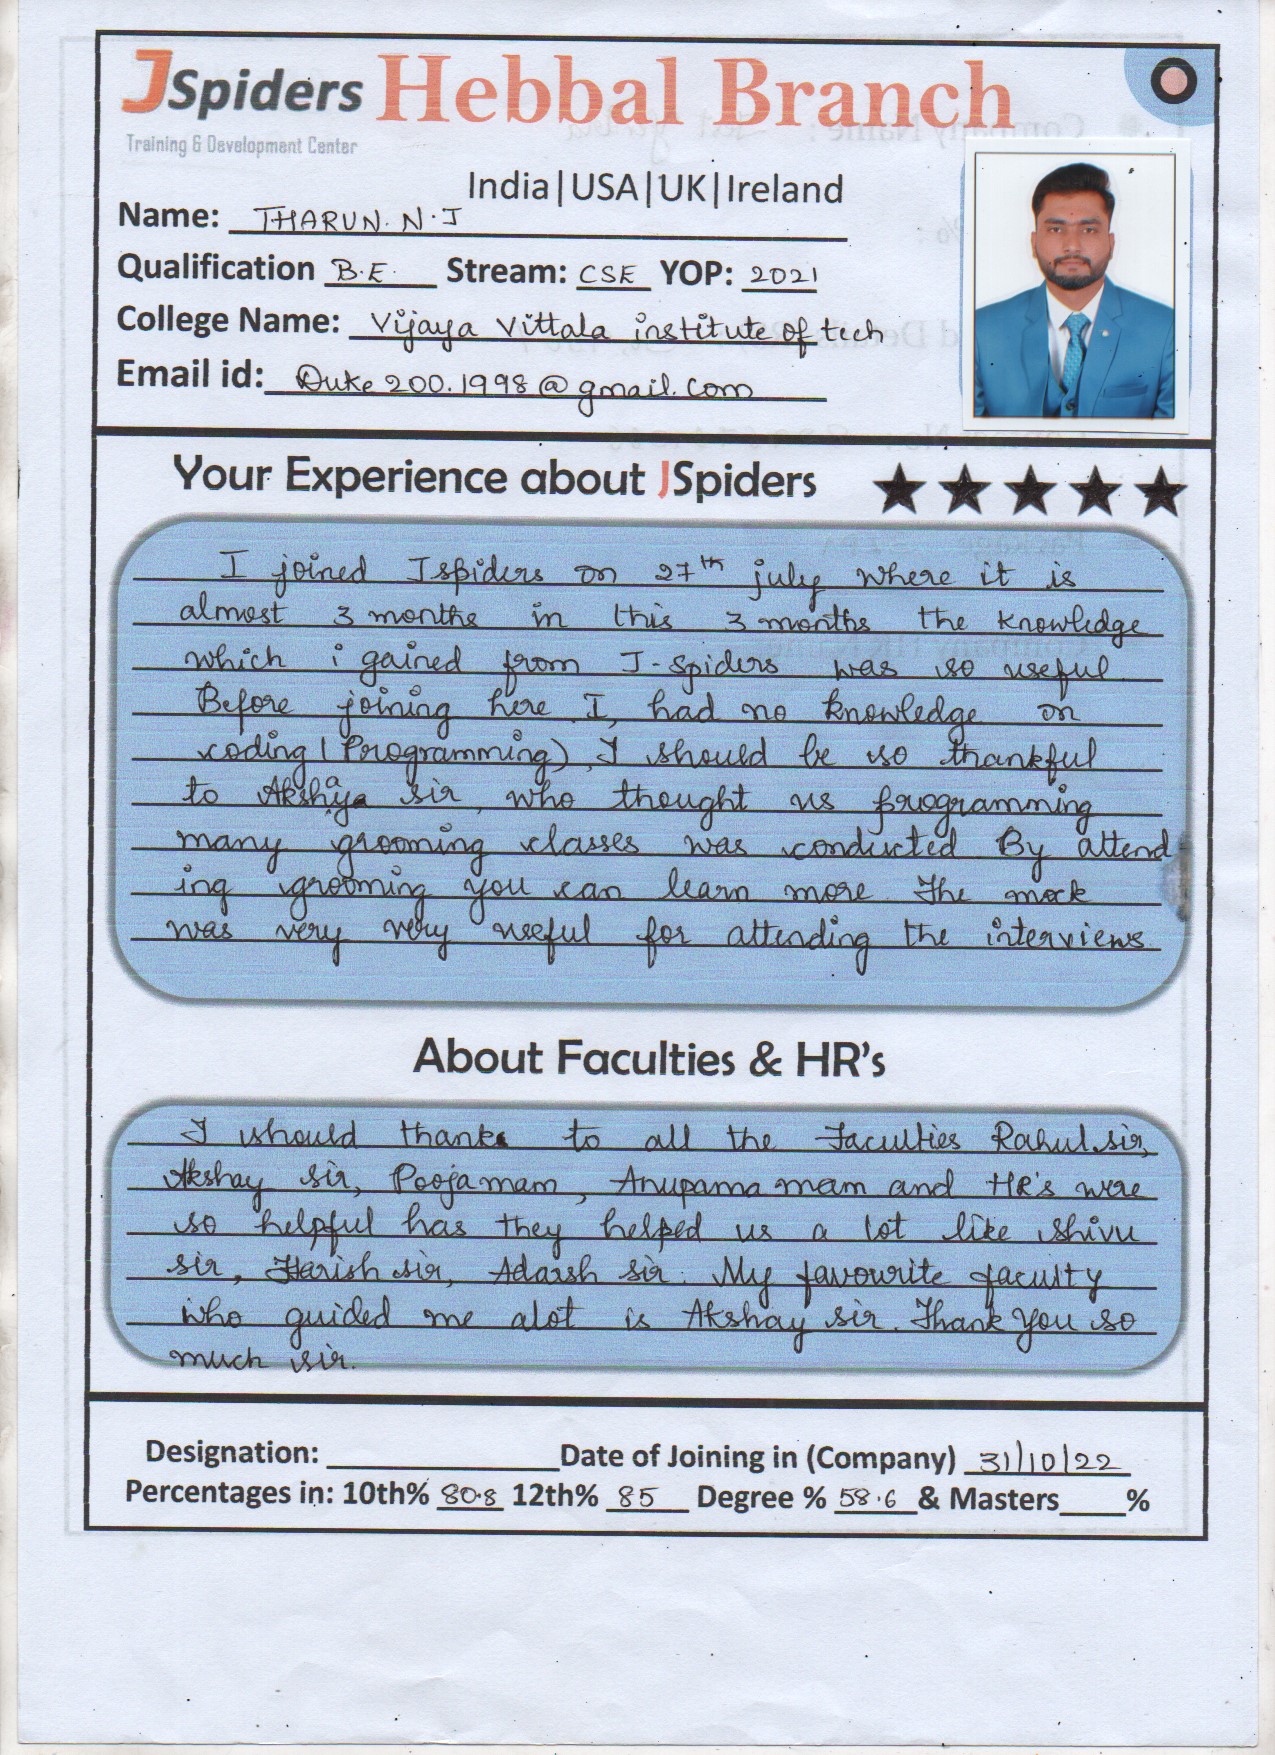 JSpiders Hebbal Branch
Training & Development Center
India|USA|UK|Ireland
Name: THARUN. N. J
Qualification B.E. Stream: CSE YOP: 2021
College Name: Vijaya Vittala institute of tech
Email id: Duke200.1998@gmail.com
Your Experience about JSpiders ★ ★ ★ ★ ★
I joined Jspiders on 27th july where it is
almost 3 months in this 3 months the knowledge
which i gained from J-spiders was so useful.
Before joining here I, had no knowledge on
coding (Programming), I should be so thankful
to Akshaya sir, who thought us programming
many grooming classes was conducted By attend
ing grooming you can learn more. The mock
was very very useful for attending the interviews
About Faculties & HR's
I should thank to all the Faculties Rahul sir,
Akshay sir, Pooja mam, Anupama mam and HR's were
so helpful has they helped us a lot like shivu
sir, Harish sir, Adarsh sir. My favourite faculty
who guided me alot is Akshay sir. Thank You so
much sir.
Designation: Date of Joining in (Company) 31/10/22
Percentages in: 10th% 80.8 12th% 85 Degree % 58.6 & Masters %